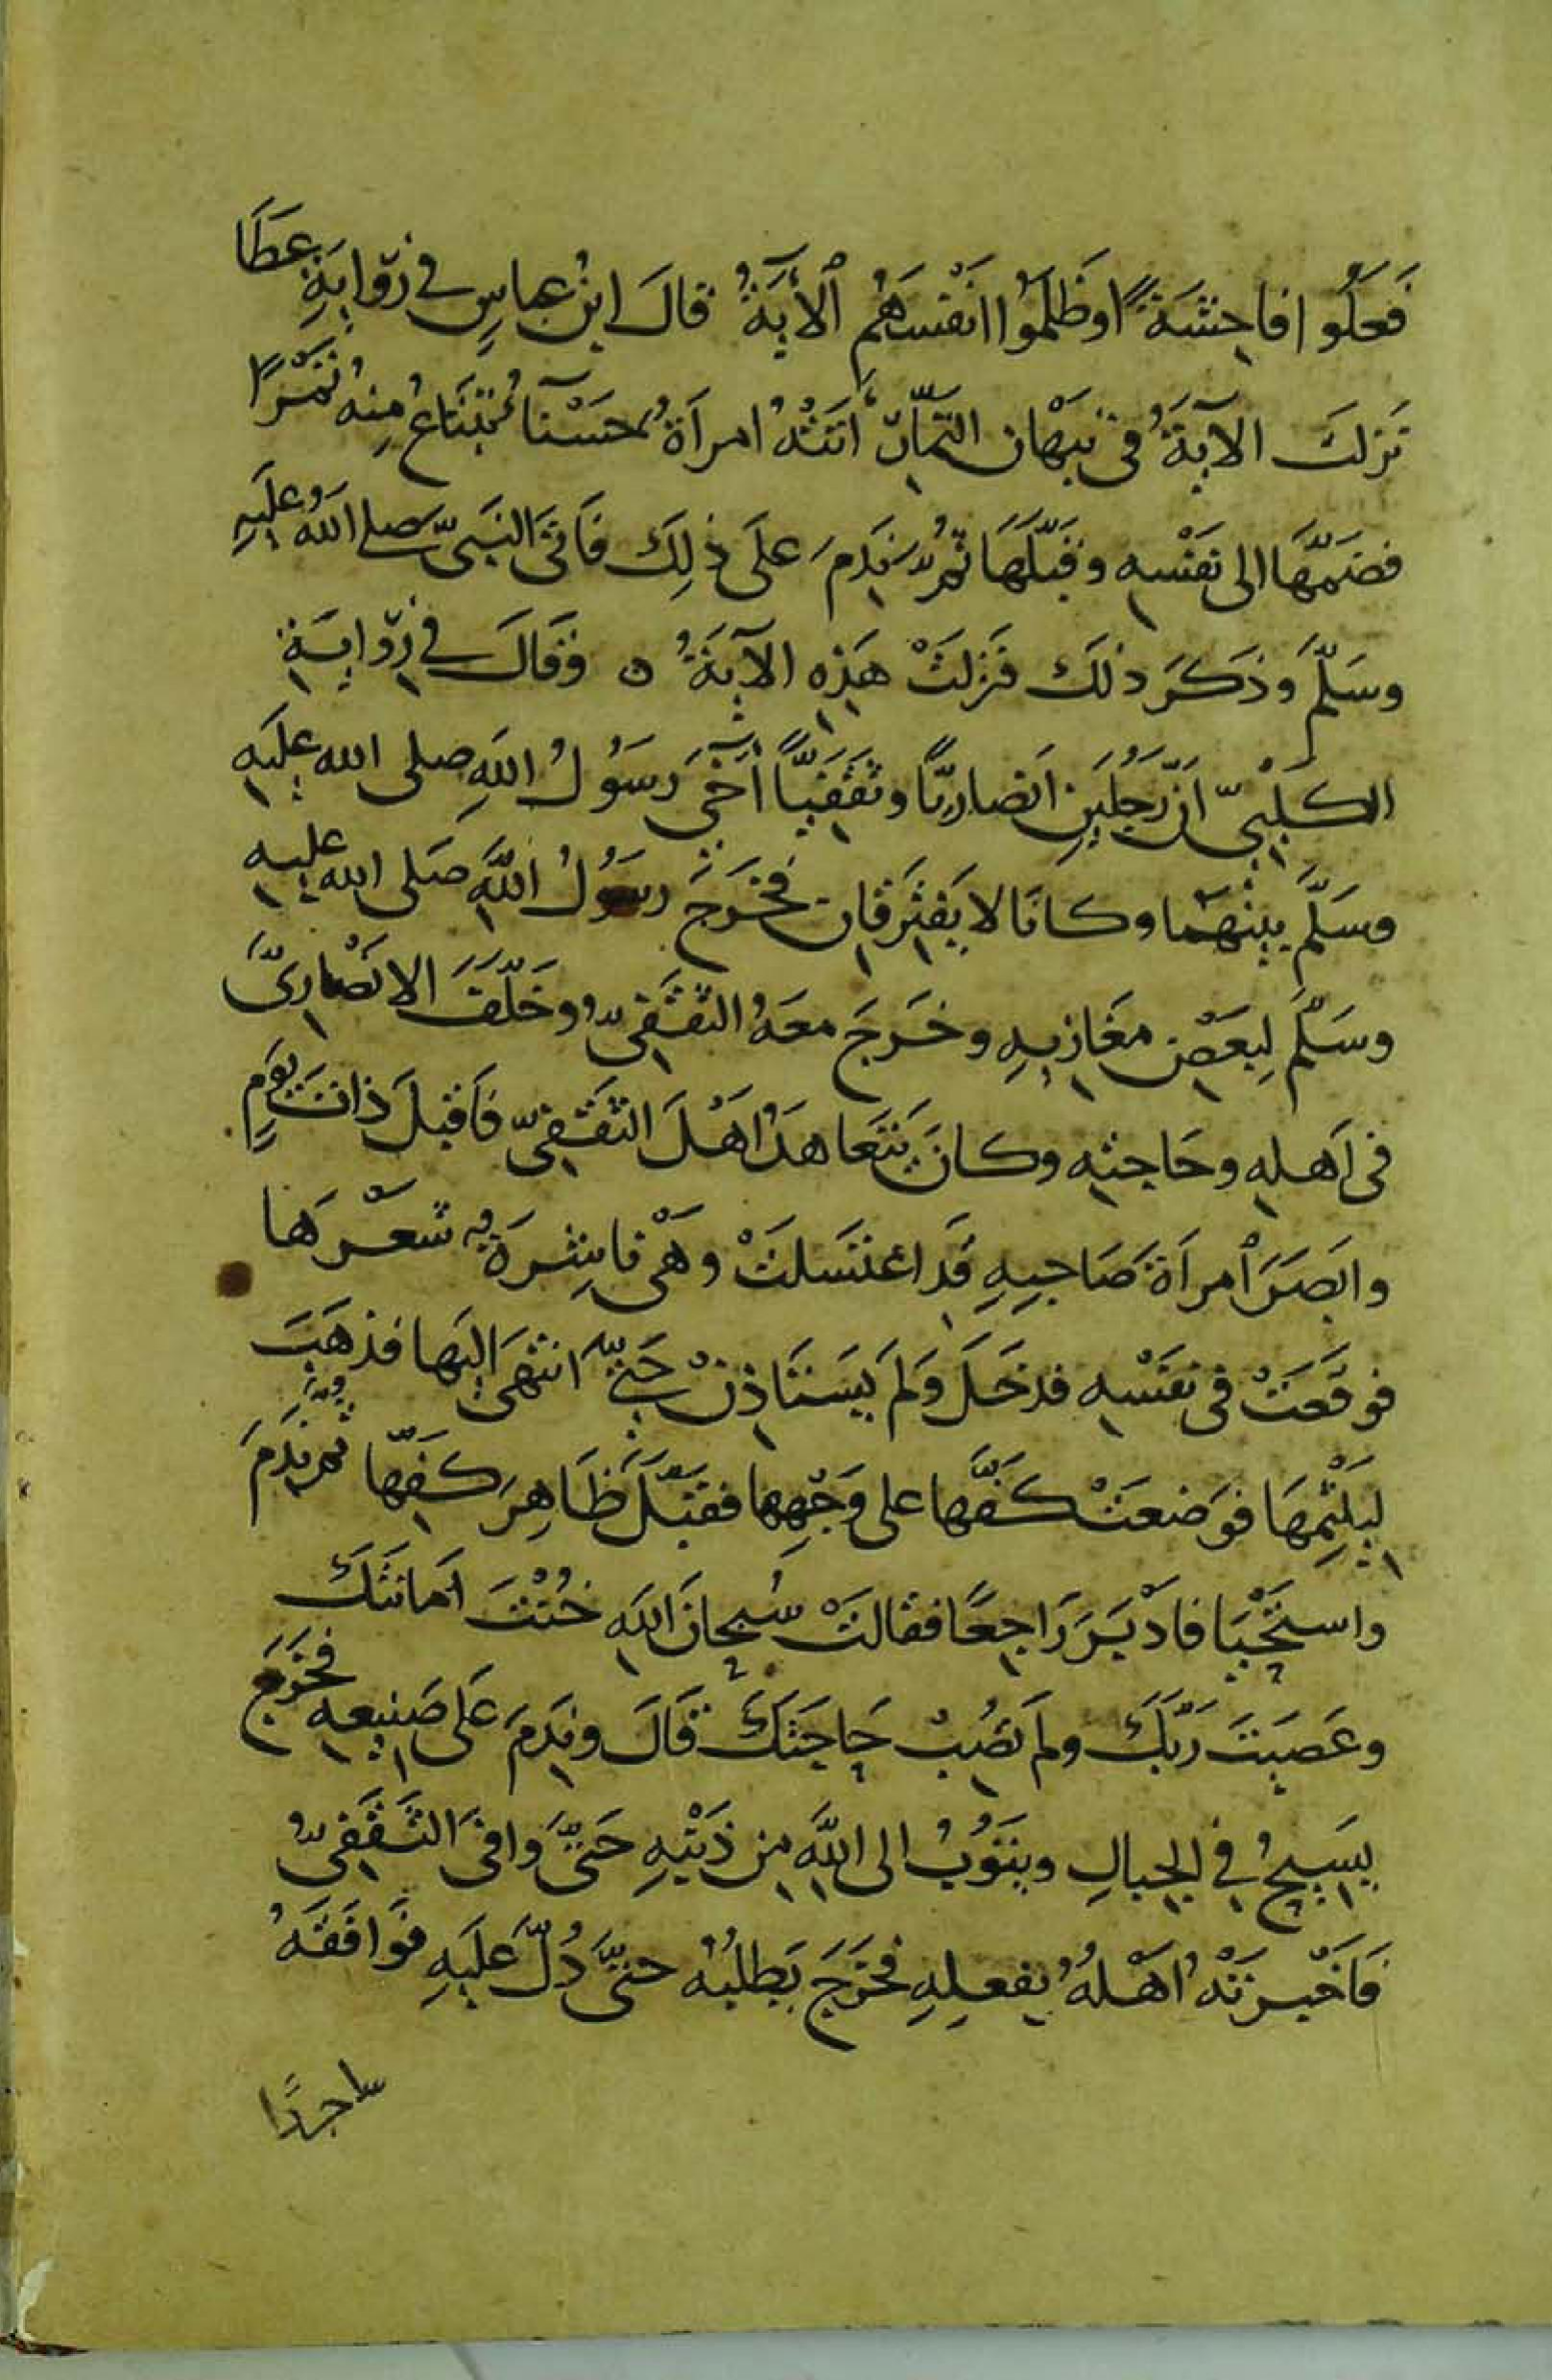 فَعَلُوا فاحِشَةً اوظَلَمُوا انَفْسَهُم ٱلآيَةُ قالَ ابنُ عباسٍ في رِوايَةِ عَطَا
نَزلَتِ الآيَةُ فى نبْهَان التَّمَّارِ أتَتْهُ امرأةٌ حَسْنَآ تَبْتَاعُ مِنهُ تَمْرًا
فضَمَّهَا الى نَفْسِهِ وقَبَّلَهَا ثُمَّ نَدِمَ عَلَى ذلِكَ فَاتَى النَبىَّ صلى اللهُ عليَهِ
وسَلَّمَ وَذَكَرَ ذلكَ فنَزلَتْ هَذِهِ الآيَةُ ه وَقَالَ في رِوايَةِ
الكَلْبِيّ اَنّ رَجُلَيَنِ اَنصَارِيًّا وثَقَفيًّا آخَى رَسَوُلُ اللهِ صلى الله عليَهِ
وسَلَّمَ بينْهَمَا وكانَا لا يَفْتَرِقَانِ فخَرَجَ رسَوُلُ اللَّهِ صَلى الله عليهِ
وسَلَّمَ لِبَعَضِ مغَازيهِ وخَرَجَ معَهُ الثَقَفِىُّ وخَلَّفَ الانَصَارِىَّ
فى اَهلهِ وحَاجتهِ وكانَ يَتَعاهَدُ اهَلَ الثَقَفِيّ فَاَقبلَ ذاتَ يَومٍ
وابَصَرَ ٱمرأةَ صَاحِبِهِ قَد اغتَسَلتْ وَهْى ناشِرَةٌ شَعْرَها
فوقَعَتْ فى نَفْسِهِ فدخَلَ وَلَم يَسَتَاذِنْ حَتّى انتهىَ اليَها فذهَبَ
ليَلْثِمَهَا فوَضعَتْ كَفَّها على وَجْهِها فقبَّلَ ظَاهِرَ كَفِّها ثُمَ نَدِمَ
واستَحْيَا فادْبَرَ رَاجِعًا فقالتْ سُبحانَ اللهِ خُنْتَ اَمانتَكَ
وعَصَيتَ رَبَّكَ ولَم تصُبْ حَاجَتَكَ قَالَ ونَدِمَ عَلى صَنيعِهِ فخَرَجَ
يسَيحُ في الجبالِ ويتَوُبُ الى اللَّهِ مِن ذَنْبِهِ حَتىَّ وافىَ الثَّقَفِىُّ
فَاَخْبرَتْهُ اَهْلهُ بفعلِهِ فخَرَجَ يَطلبُهُ حتىَّ دُلَّ عَليَهِ فوَافَقَهُ
ساجدًا